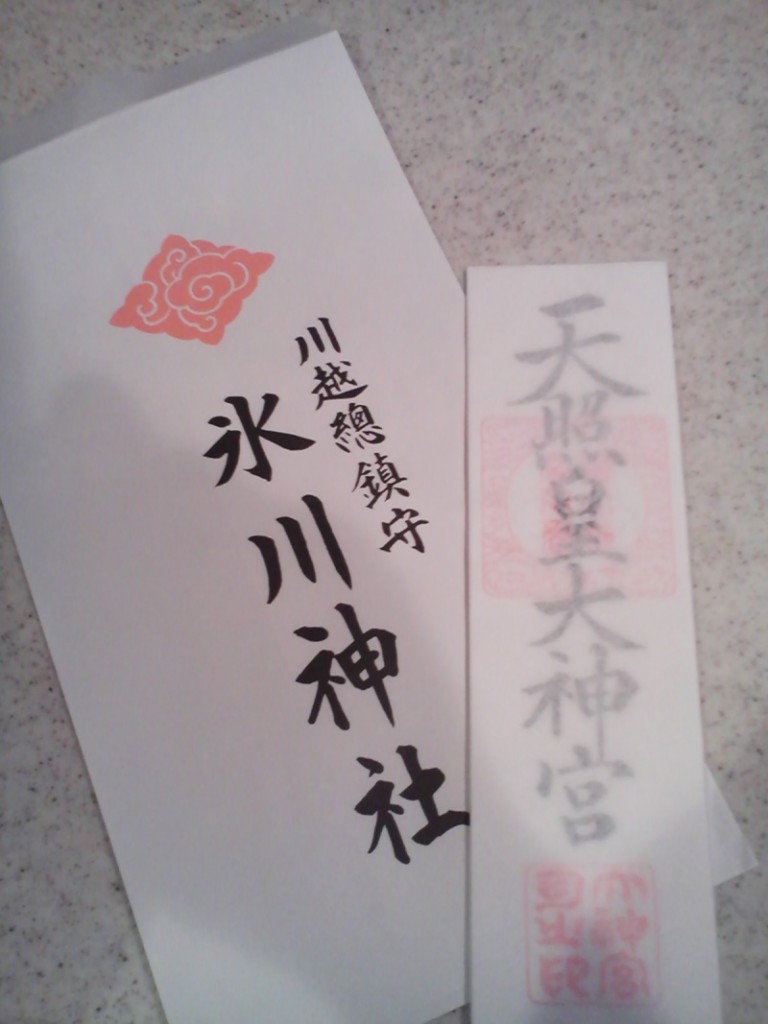 川越總鎮守
氷川神社
天照皇大神宮